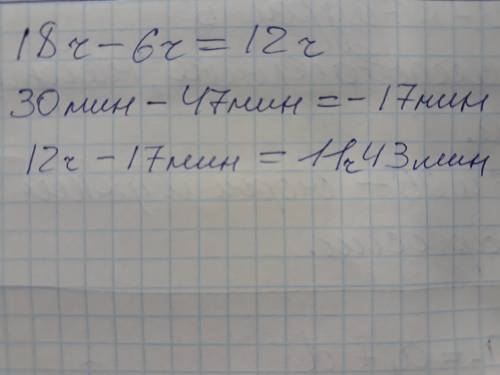 18ч - 6ч = 12ч
30мин - 47мин = - 17мин
12ч - 17мин = 11ч43мин